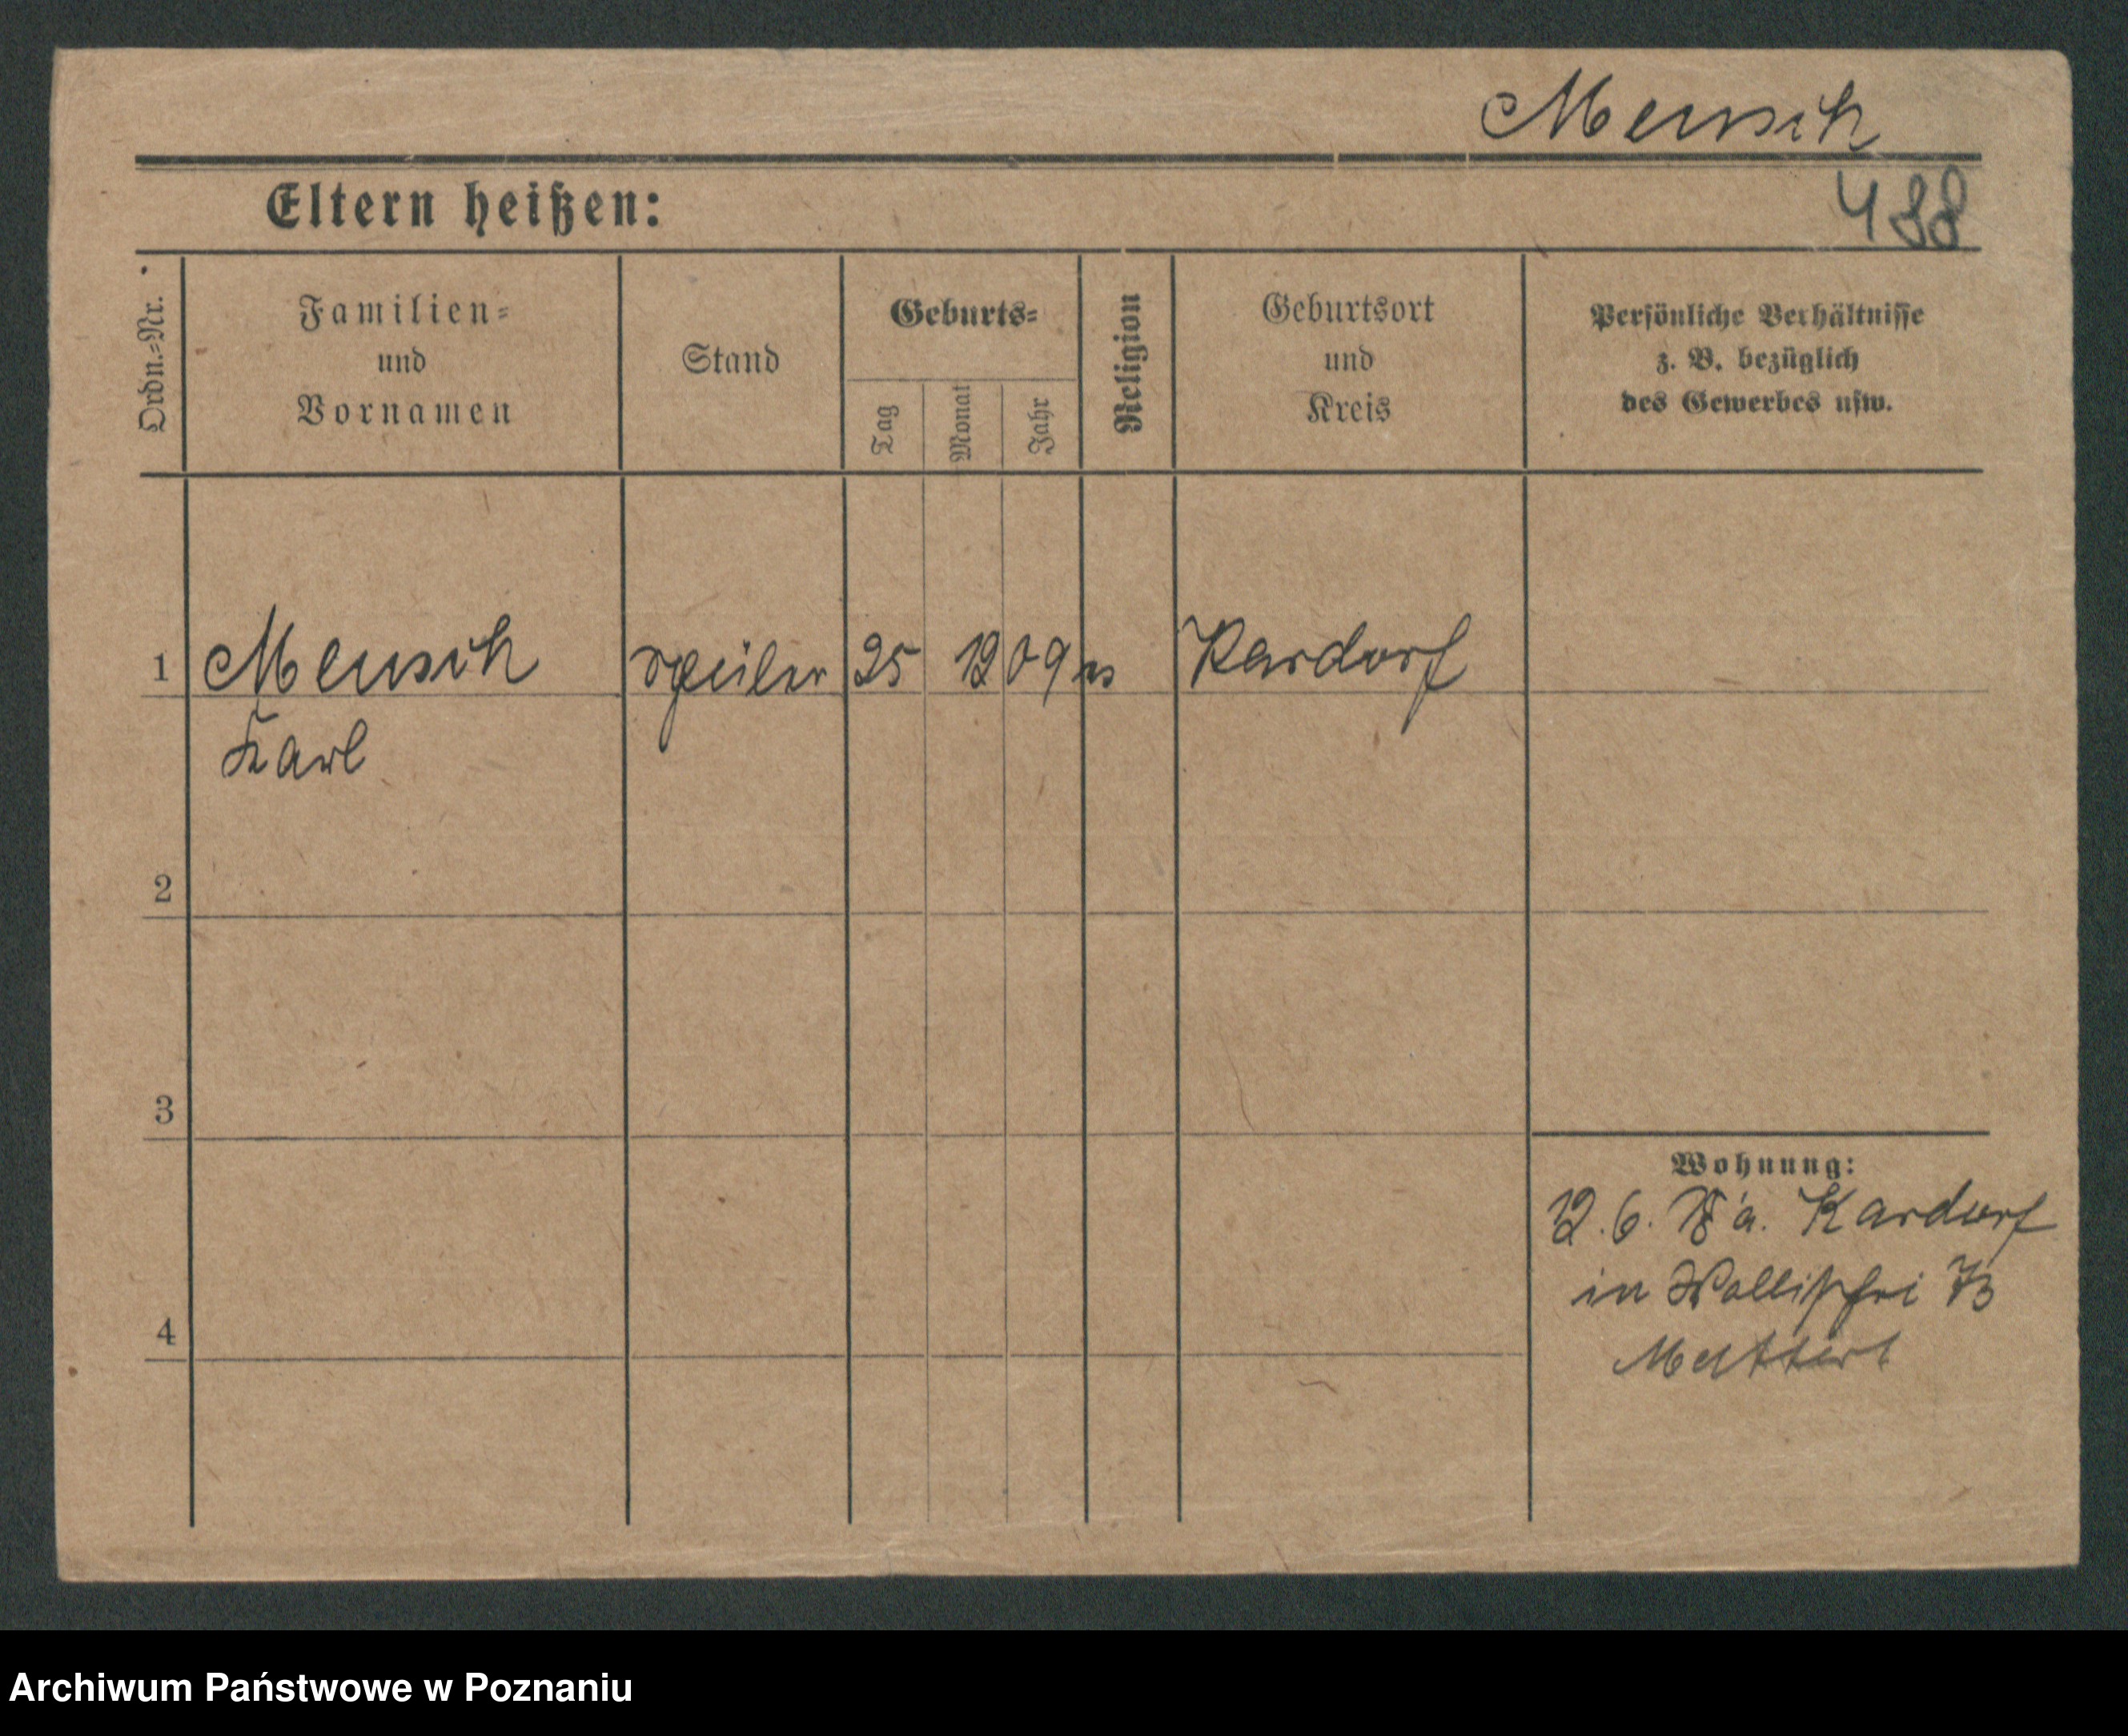 Mensch
488
Eltern heißen:
Ordn.=Nr.
Familien=
und
Vornamen
Stand
Geburts=
Tag
Monat
Jahr
Religion
Geburtsort
und
Kreis
Persönliche Verhältnisse
z. B. bezüglich
des Gewerbes usw.
1 Mensch 25 12 09 Kardorf
Karl
2
3
Wohnung:
12. 6. 18 a. Kardorf
in 73
4
Archiwum Państwowe w Poznaniu